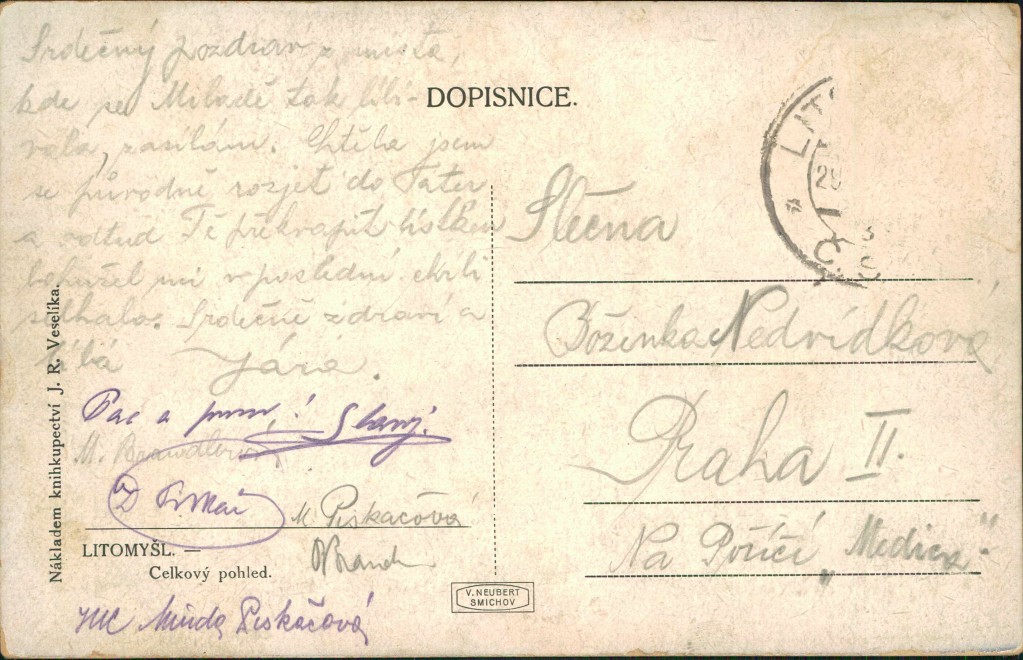 Srdečný pozdrav z místa,
kde se Miladě tak líbi-
valo, zasílám. Chtěla jsem
se původně rozjet do Tater
a odtud Tě překvapit lístkem
bohužel mi v poslední chvíli
selhalo. Srdečně zdraví a
líbá Jára.
Pac a pusu! Slavý.
M.
M. Piskačová
Piskačová
DOPISNICE.
Slečna
Boženka Nedvídková
Praha II.
Na Poříčí „Medica"
Nákladem knihkupectví J. R. Veselíka.
LITOMYŠL. —
Celkový pohled.
V. NEUBERT
SMICHOV